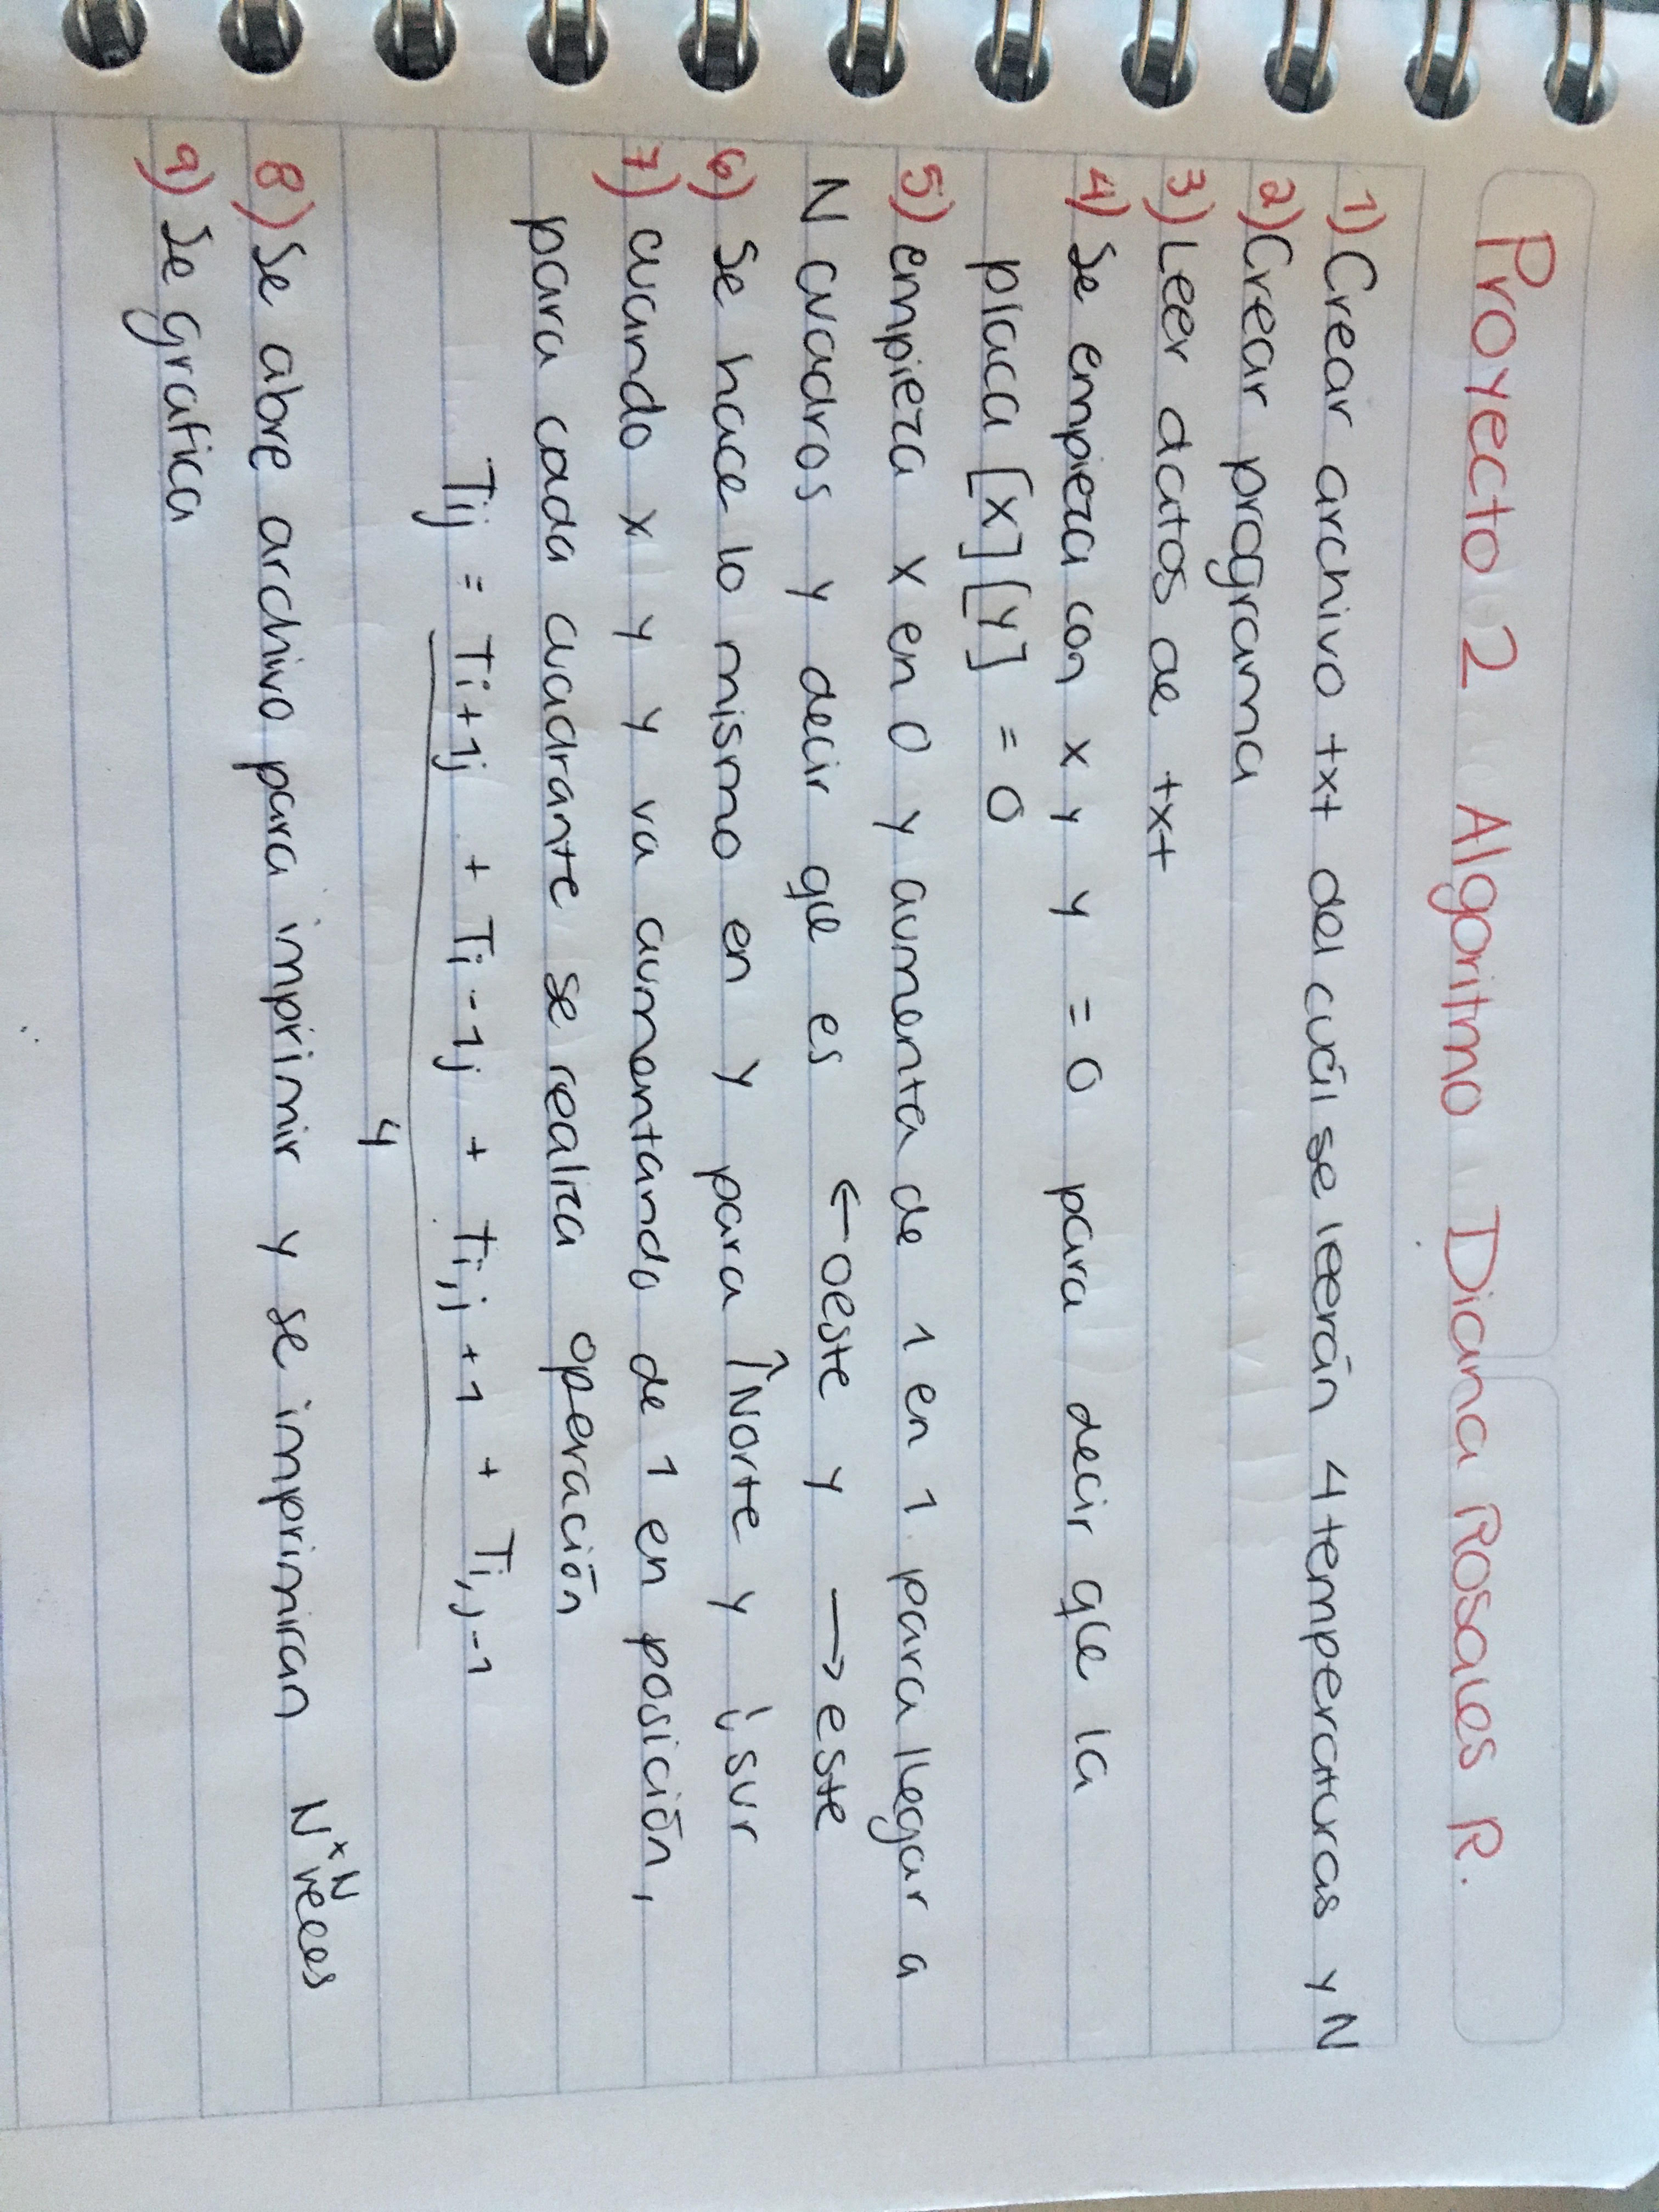 Proyecto 2 Algoritmo Diana Rosales R.
1) Crear archivo txt del cuál se leerán 4 temperaturas y N
2) Crear programa
3) Leer datos de txt
4) Se empieza con x y y = 0 para decir que la
placa [x][y] = 0
5) empieza x en 0 y aumenta de 1 en 1 para llegar a
N cuadros y decir que es ← oeste y → este
6) Se hace lo mismo en y para ↑ Norte y ↓ sur
7) cuando x y y va aumentando de 1 en posición,
para cada cuadrante se realiza operación
Tij = Ti+1j + Ti-1j + Ti,j+1 + Ti,j-1
4
8) Se abre archivo para imprimir y se imprimiran N×N veces
9) Se grafica